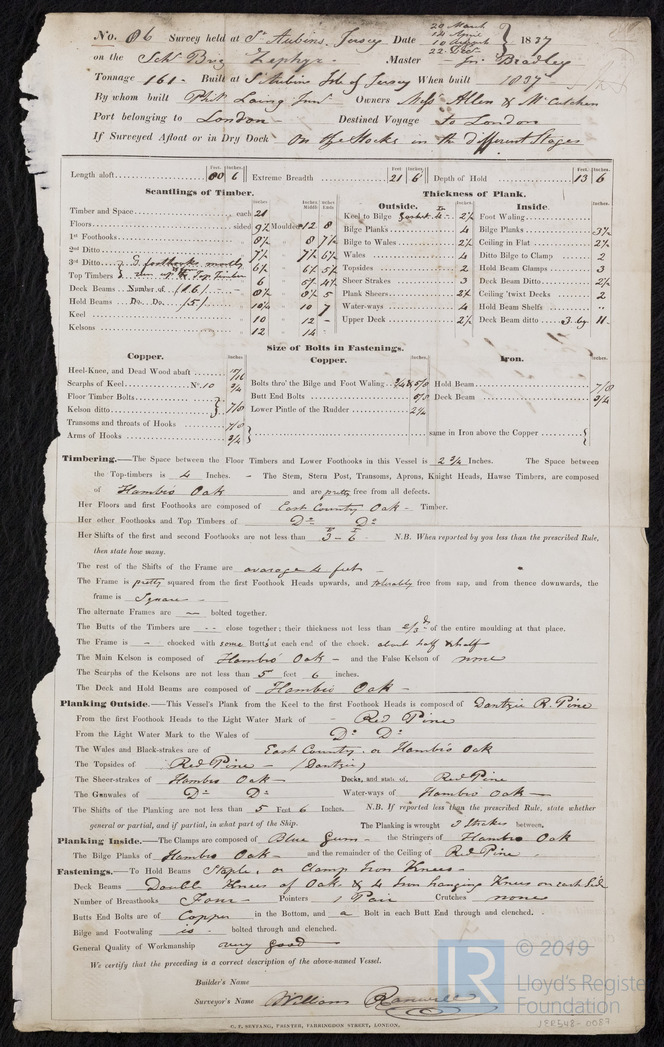 No. 86 Survey held at St. Aubins, Jersey Date 20 March 14 April 10 August 22 Dec. 1837
on the Schr Brig Zephyr - Master Jn. Bradley
Tonnage 161 - Built at St Aubins Isle of Jersey When built 1837 -
By whom built Phil. Laing Junr Owners Messrs Allen &
Port belonging to London - Destined Voyage to London
If Surveyed Afloat or in Dry Dock On the Stocks in the different Stages
Length aloft 80 6 Extreme Breadth 21 6 Depth of Hold 13 6
Scantlings of Timber. Thickness of Plank.
Outside. Inside.
Timber and Space each 21 Keel to Bilge 2½ Foot Waling
Floors sided 9½ Moulded 12 8 Bilge Planks 4 Bilge Planks 3½
1st Foothooks 8½ 8 7½ Bilge to Wales 2½ Ceiling in Flat 2½
2nd Ditto 7½ 7½ 6½ Wales 4 Ditto Bilge to Clamp 2
3rd Ditto 6½ 6½ 5½ Topsides 2 Hold Beam Clamps 3
Top Timbers 6 Sheer Strakes 3 Deck Beam Ditto 2½
Deck Beams Number of (16) 8½ 8½ 5 Plank Sheers 2½ Ceiling 'twixt Decks 2
Hold Beams Do. Do. (5) 10¼ 10 7 Water-ways 4 Hold Beam Shelfs
Keel 10 12 - Upper Deck 2½ Deck Beam ditto 3 by 11
Kelsons 12 14 -
Size of Bolts in Fastenings.
Copper. Copper. Iron.
Heel-Knee, and Dead Wood abaft
Scarphs of Keel No. 10 ¾ Bolts thro' the Bilge and Foot Waling ¾ & 5/8 Hold Beam 7/8
Floor Timber Bolts Butt End Bolts 5/8 Deck Beam ¾
Kelson ditto 7/8 Lower Pintle of the Rudder 2¼
Transoms and throats of Hooks 7/8
Arms of Hooks ¾ same in Iron above the Copper
Timbering.—The Space between the Floor Timbers and Lower Foothooks in this Vessel is 2¾ Inches. The Space between
the Top-timbers is 4 Inches. - The Stem, Stern Post, Transoms, Aprons, Knight Heads, Hawse Timbers, are composed
of Hambro Oak and are pretty free from all defects.
Her Floors and first Foothooks are composed of East Country Oak - Timber.
Her other Foothooks and Top Timbers of Do Do
Her Shifts of the first and second Foothooks are not less than 3 - 6 N.B. When reported by you less than the prescribed Rule,
then state how many.
The rest of the Shifts of the Frame are avarage 4 feet -
The Frame is pretty squared from the first Foothook Heads upwards, and tolerably free from sap, and from thence downwards, the
frame is Square -
The alternate Frames are — bolted together.
The Butts of the Timbers are -- close together; their thickness not less than 2/3ds of the entire moulding at that place.
The Frame is - chocked with some Butts at each end of the chock. about half & half
The Main Kelson is composed of Hambro Oak - and the False Kelson of none
The Scarphs of the Kelsons are not less than 5 feet 6 inches.
The Deck and Hold Beams are composed of Hambro Oak -
Planking Outside.—This Vessel's Plank from the Keel to the first Foothook Heads is composed of Dantzic R. Pine
From the first Foothook Heads to the Light Water Mark of - Red Pine
From the Light Water Mark to the Wales of Do Do
The Wales and Black-strakes are of East Country or Hambro Oak
The Topsides of Red Pine - (Dantzic)
The Sheer-strakes of Hambro Oak - Decks, and state of, Red Pine
The Gunwales of Do Do Water-ways of Hambro Oak -
The Shifts of the Planking are not less than 5 Feet 6 Inches. N.B. If reported less than the prescribed Rule, state whether
general or partial, and if partial, in what part of the Ship. The Planking is wrought 3 Strakes between.
Planking Inside.—The Clamps are composed of Blue Gum - the Stringers of Hambro Oak
The Bilge Planks of Hambro Oak - and the remainder of the Ceiling of Red Pine
Fastenings.—To Hold Beams Staple, or Clamp Iron Knees -
Deck Beams Double Knees of Oak & 4 Iron hanging Knees on each Side
Number of Breasthooks Four - Pointers 1 Pair Crutches none
Butts End Bolts are of Copper in the Bottom, and a Bolt in each Butt End through and clenched.
Bilge and Footwaling is bolted through and clenched.
General Quality of Workmanship very good
We certify that the preceding is a correct description of the above-named Vessel.
Builder's Name
Surveyor's Name William
C. F. SEYFANG, PRINTER, FARRINGDON STREET, LONDON.
LR © 2019
Lloyd's Register
Foundation